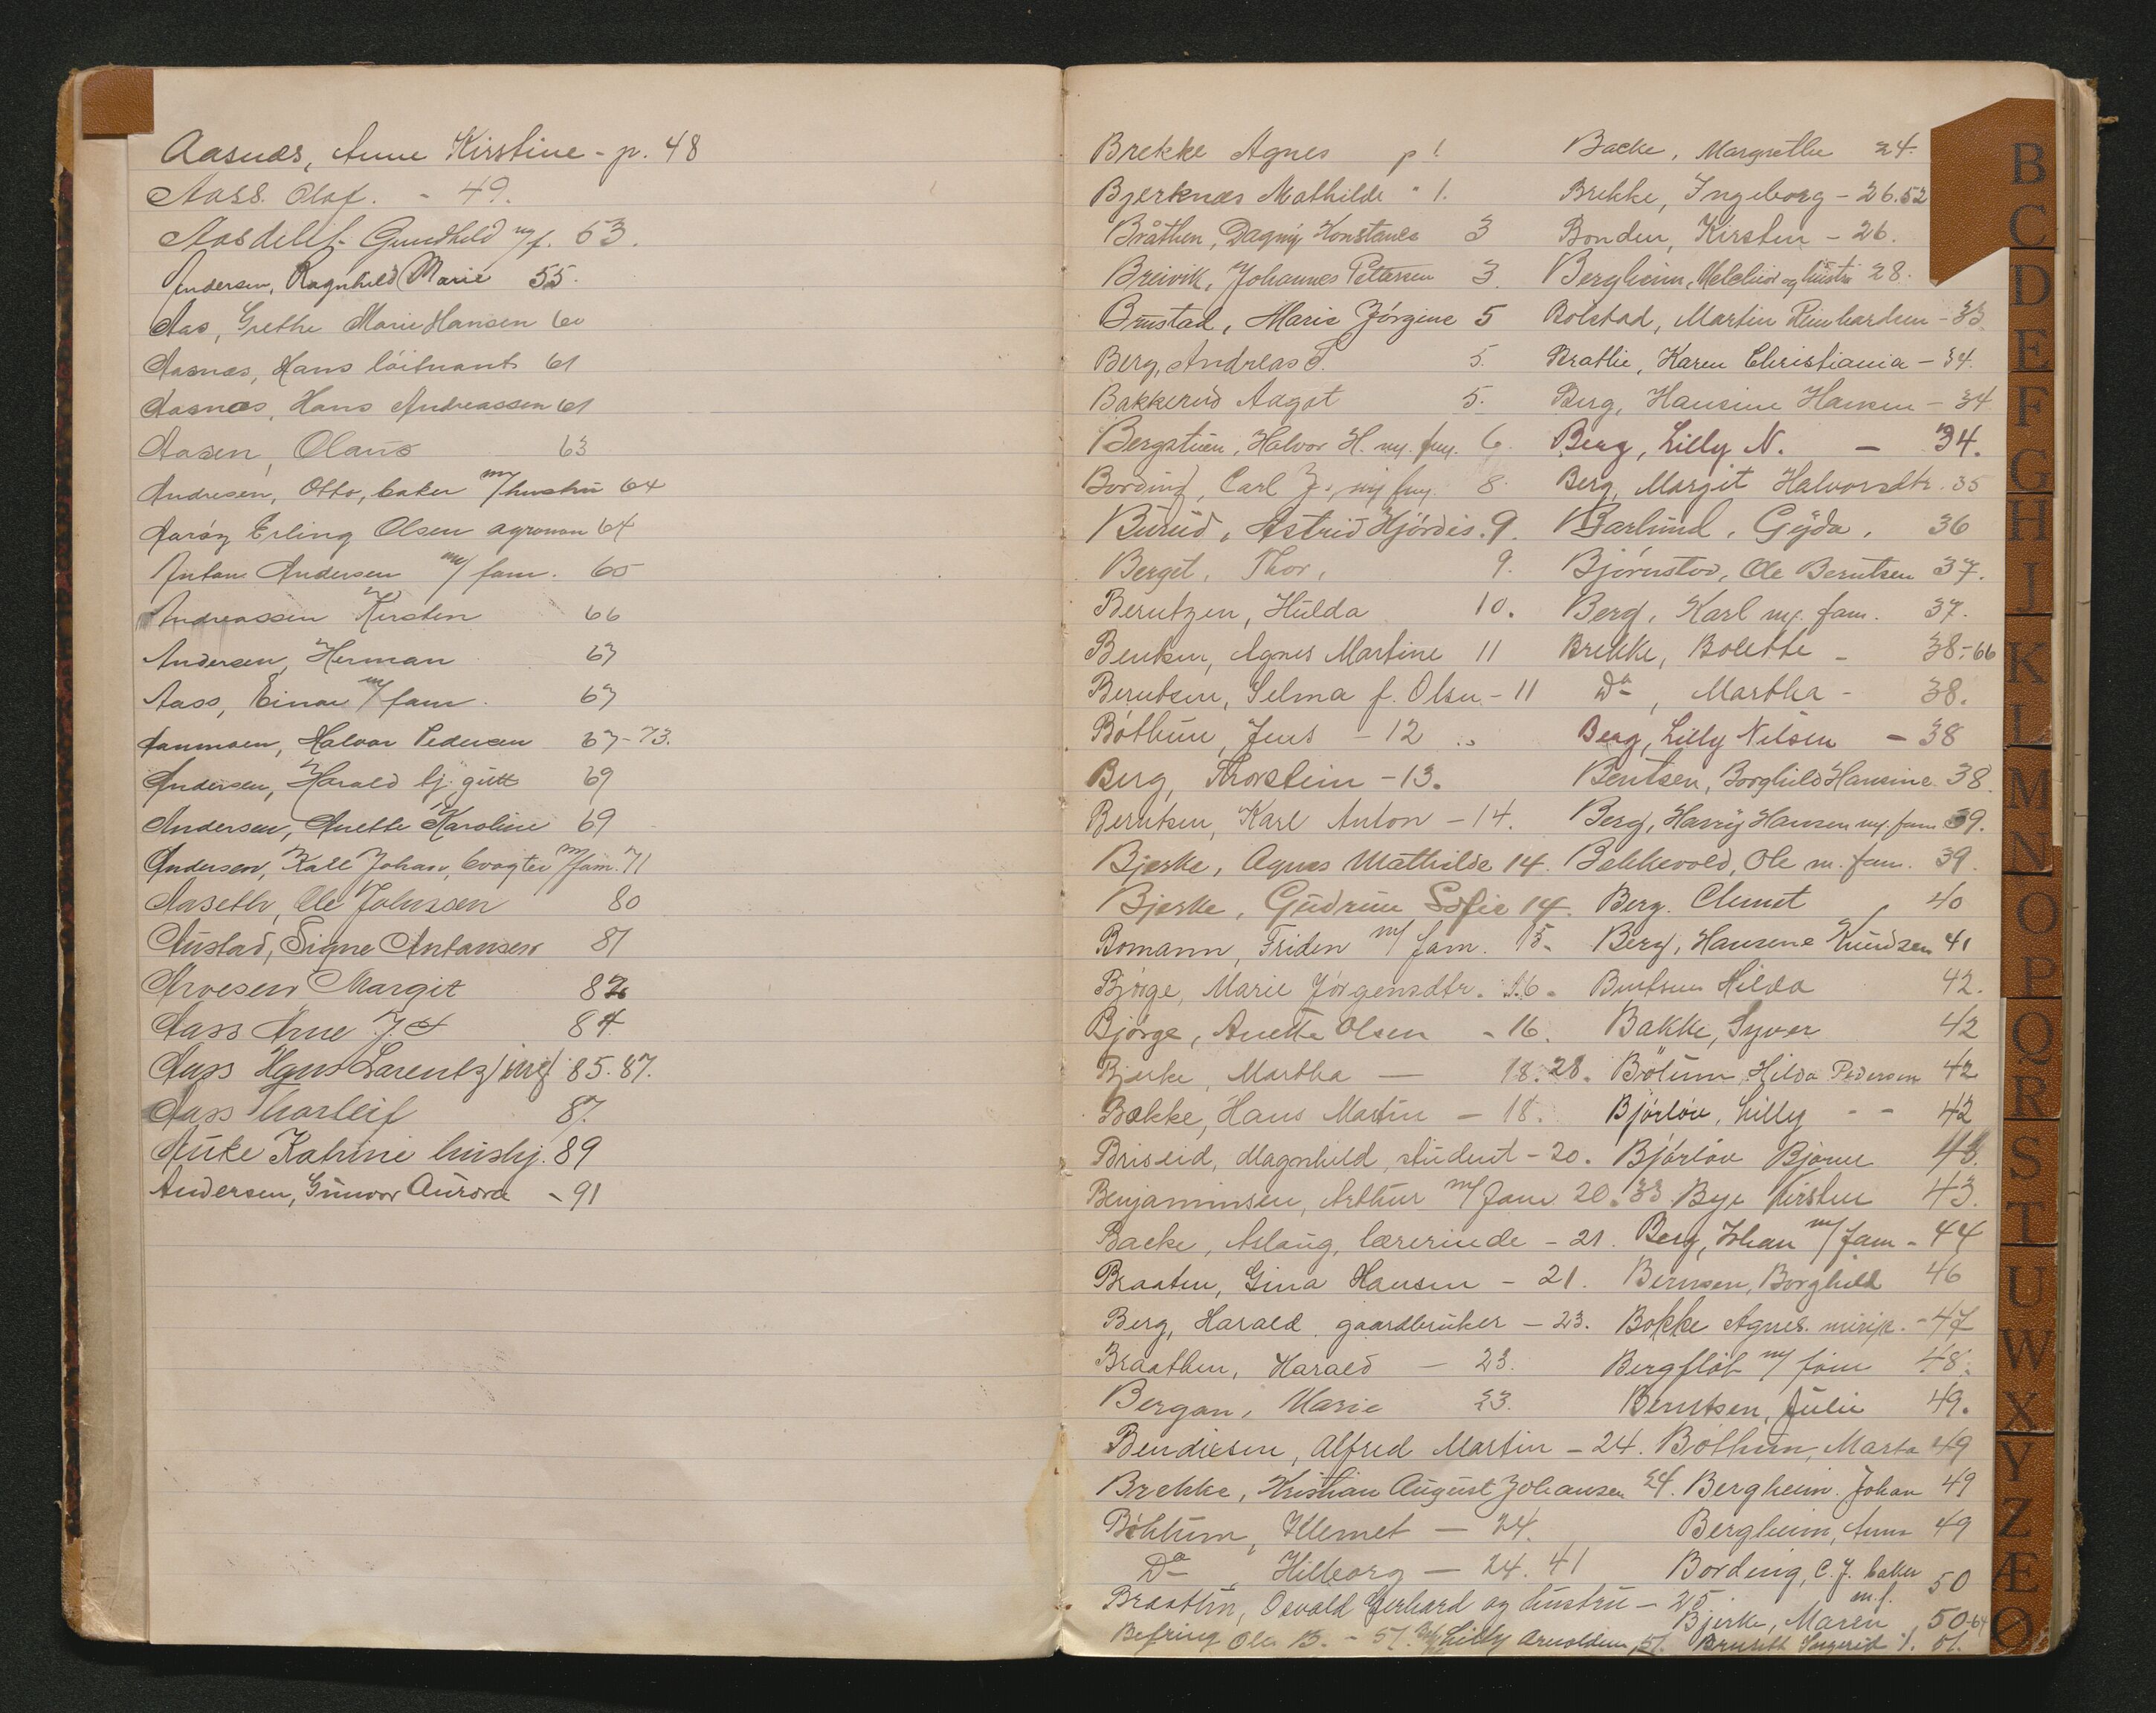 Aasnæs, Anne Kirstine - p. 48
Aass. Olaf. - 49.
Gundhild m/f. 53.
Andersen, Ragnhild Marie 55.
Aas, Grethe Marie Hansen 60
Aasnæs, Hans löitnant 61
Aasnæs, Hans Andreassen 61
Aasen, Olaus 63
Andresen, Otto, baker m/hustru 64
Erling Olsen agronom 64
Anton Andersen m/ fam. 65
Andreassen Kirsten 66
Andersen, Herman 67
Aass, Einar m/ fam. 67
Halvor Pedersen 67-73.
Andersen, Harald tj. gutt 69
Andersen, Anette Karoline 69
Andersen, Karl Johan, m/fam. 71
Aaseth, Ole Johnsen 80
Austad, Signe Antonsen 81
Arvesen Margit 82
Aass Arne 84
Aass Hans Lorentz 85. 87.
Aass Thorleif 87.
Auke Katrine hushj. 89
Andersen, Gunvor Aurora - 91
Brekke Agnes p 1.
Bjerknæs Mathilde " 1.
Bråthen, Dagny Konstance 3
Breivik, Johannes Petersen 3.
Marie Jörgine 5
Berg, Andreas 5.
Bakkerud Aagot 5.
Bergstien, Halvor H. m. fam. 6.
Bording, Carl J. m/ fam. 8.
Burud, Astrid Hjördis. 9.
Berget, Thor, 9.
Berntzen, Hulda 10.
Bentsen, Agnes Martine 11
Berntsen, Selma f. Olsen - 11
Böthun, Jens - 12
Berg, Thorstein - 13.
Berntsen, Karl Anton - 14.
Bjerke, Agnes Mathilde 14.
Bjerke, Gudrun Sofie 14.
Bomann, Friden m/ fam. 15.
Björge, Marie Jörgensdtr. 16.
Björge, Anette Olsen - 16.
Bjerke, Martha — 18. 28.
Bakke, Hans Martin - 18.
Briseid, Magnhild, student - 20.
Benjaminsen, Arthur m/ fam 20. 33
Backe, Aslaug, lærerinde - 21.
Braaten, Gina Hansen - 21.
Berg, Harald gaardbruker - 23.
Braathen, Harald - 23.
Bergan, Marie 23.
Bendixsen, Alfred Martin - 24.
Brekke, Kristian August Johansen 24.
Böhtum, Klemet — 24.
Do, Hilborg — 24. 41
Braathen, Osvald Gerhard og hustru - 25
Befring Ole B. - 51. Lilly Arnoldsen 51.
Backe, Margrethe 24.
Brekke, Ingeborg - 26. 52
Bonden, Kirsten - 26.
Bergheim, Melchior og hustru 28.
Bölstad, Martin Reinhardsen - 33.
Bratlie, Karen Christiania - 34.
Berg, Hansine Hansen - 34
Berg, Lilly N. — 34.
Berg, Margit Halvorsdtr. 35
Barlund, Gyda, 36
Björnstad, Ole Berntsen 37.
Berg, Karl m. fam. 37.
Brekke, Bolette - 38.-66
Do, Martha - 38.
Berg, Lilly Nilsen - 38
Bentsen, Borghild Hansine 38.
Berg, Harry Hansen m/ fam 39.
Bekkevold, Ole m. fam. 39.
Berg. Clemet 40
Berg, Hansene Knudsen 41
Berntsen Hilda 42.
Bakke, Syver 42
Bötum, Hilda Pedersen 42
Björlöw, Lilly - - 42
Björlöw Bjarne 43.
Bye Kirsten 43.
Berg, Johan m/ fam - 44
Bernsen, Borghild 46
Bokke Agnes. - 47
Bergflöt m/ fam 48.
Berntsen, Julie 49.
Bothun, Marta 49
Bergheim. Johan 49
Bergheim, Anne 49
Bording, C. J. baker m.f. 50
Bjerke, Maren 50-64
Ingerid 51.
B
C
D
E
F
G
H
J
K
L
M
N
O
P
Q
R
S
T
U
W
X
Y
Z
Æ
Ø